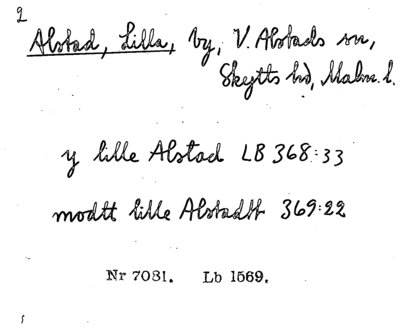 2
Alstad, Lilla, by, V. Alstads sn,
Skytts hd, Malm. l.
y lille Alstad LB 368:33
modtt lille Alstadtt 369:22
Nr 7081. Lb 1569.